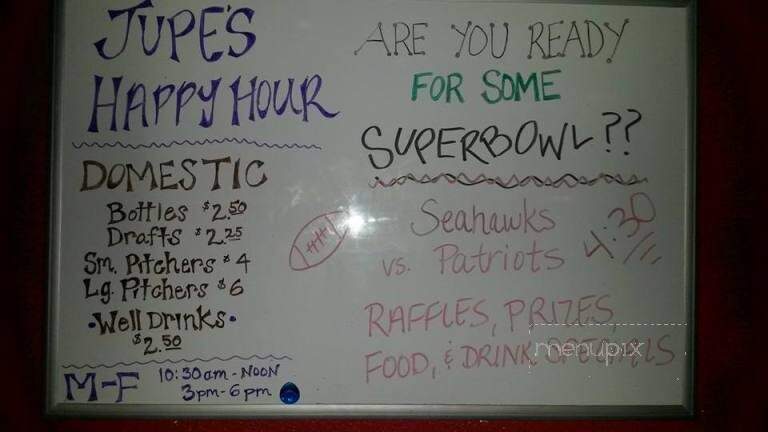 JUPE'S
HAPPY HOUR
DOMESTIC
Bottles $2.50
Drafts $2.25
Sm. Pitchers $4
Lg. Pitchers $6
•Well Drinks•
$2.50
M-F 10:30am-NOON
3pm-6pm
ARE YOU READY
FOR SOME
SUPERBOWL??
Seahawks
vs. Patriots
4:30
RAFFLES, PRIZES,
FOOD, & DRINK SPECIALS
menupix